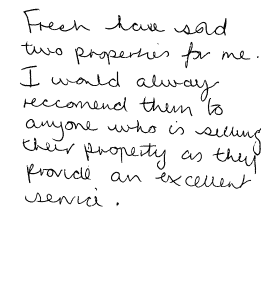 Fresh have sold
two properties for me.
I would always
reccomend them to
anyone who is selling
their property as they
provide an excellent
service.